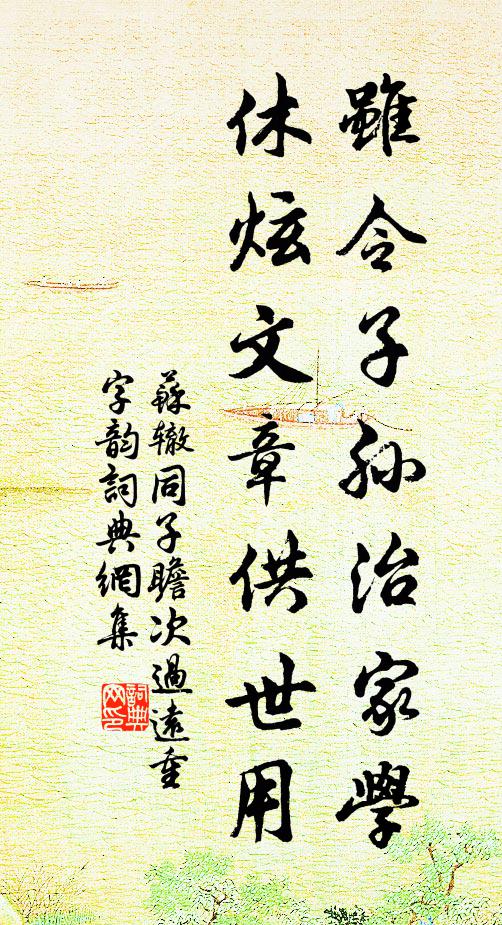 雖令子孫治家學
休炫文章供世用
蘇辙同子瞻次過遠重
字韵詞典網集
詞典
网印